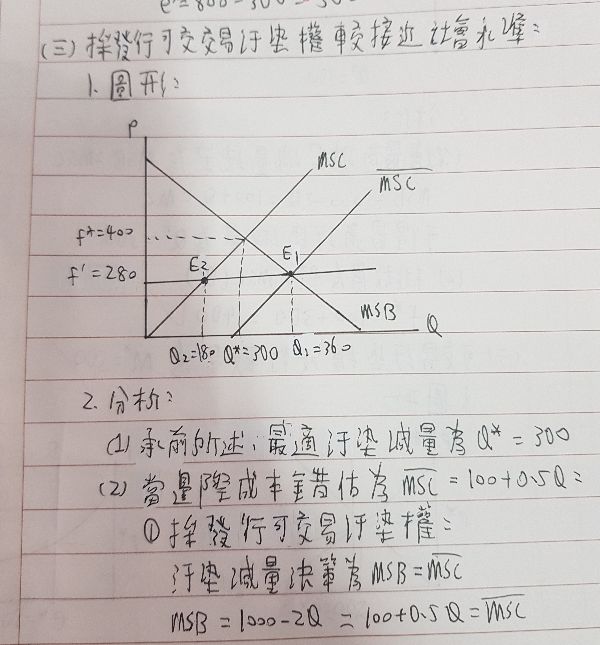 (三) 採發行可交易汙染權較接近社會水準：
1. 圖形：
P
MSC
MSC
f*=400
E2
E1
f'=280
MSB
Q
Q2=180 Q*=300 Q1=360
2. 分析：
(1) 承前所述，最適汙染減量為 Q* = 300
(2) 當邊際成本錯估為 MSC = 100+0.5Q：
① 採發行可交易汙染權：
汙染減量決策為 MSB = MSC
MSB = 1000-2Q = 100+0.5Q = MSC